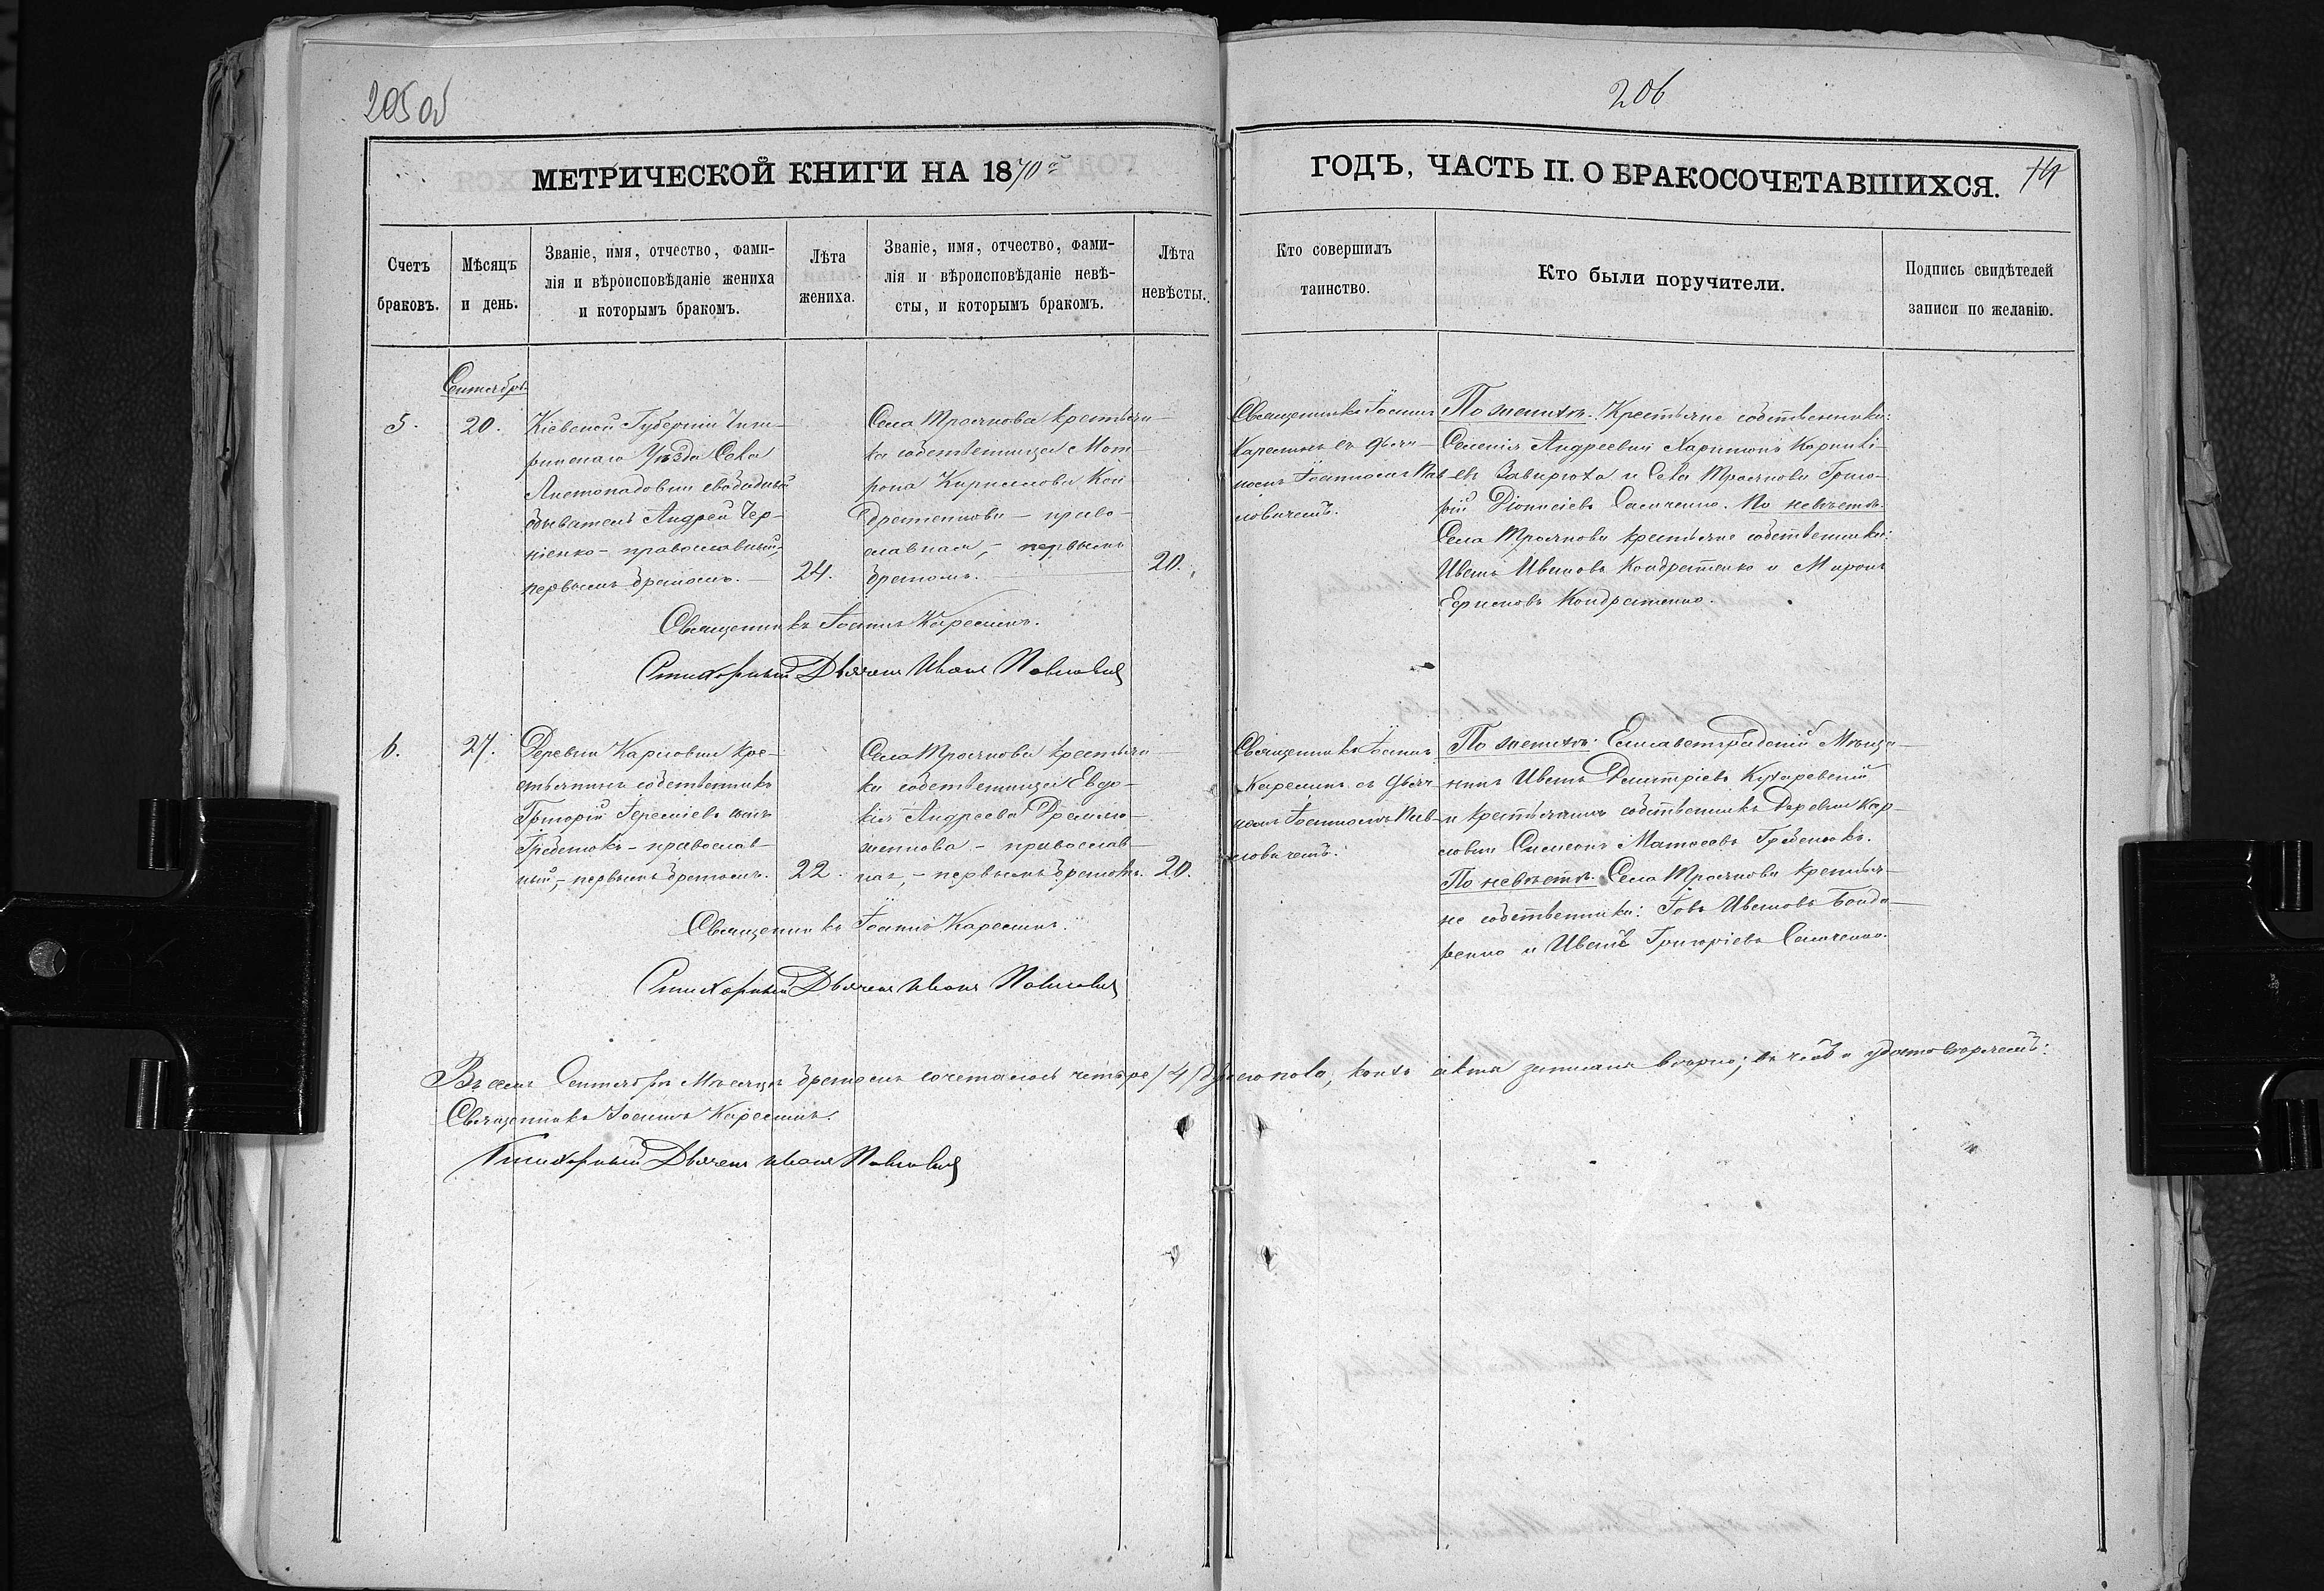 205 об
206
МЕТРИЧЕСКОЙ КНИГИ НА 1870й
ГОДЪ, ЧАСТЬ II. О БРАКОСОЧЕТАВШИХСЯ.
Счетъ
браковъ.
Мѣсяцъ
и день.
Званіе, имя, отчество, фами-
лія и вѣроисповѣданіе жениха
и которымъ бракомъ.
Лѣта
жениха.
Званіе, имя, отчество, фами-
лія и вѣроисповѣданіе невѣ-
сты, и которымъ бракомъ.
Лѣта
невѣсты.
Кто совершилъ
таинство.
Кто были поручители.
Подпись свидѣтелей
записи по желанію.
Сентябрь
5.
20.
Кіевской Губерніи Чиги-
ринскаго Уѣзда Села
обыватель Андрей Чер-
ненко - православный,
первымъ бракомъ.
24.
Села Троянова крестьян-
ка собственница Мат-
рона Кириллова Кон-
дратенкова - право-
славная, - первымъ
бракомъ.
20.
Священникъ Іоаннъ
Карасинъ съ дьяч-
комъ Іоанномъ Пав-
ловичемъ.
По женихѣ: Крестьяне собственники:
Андреевки Харитонъ Корнилі-
евъ Завирюха и Села Троянова Григо-
рій Діонисіевъ Самченко. По невѣстѣ:
Села Троянова крестьяне собственники:
Иванъ Ивановъ Кондратенко и Миронъ
Кондратенко.
Священникъ Іоаннъ Карасинъ.
Стихарный Дьячекъ Иванъ Павловичъ
6.
27.
Деревни Карловки кре-
стьянинъ собственникъ
Григорій Гереміевъ сынъ
Гребенюкъ - православ-
ный, - первымъ бракомъ.
22.
Села Троянова крестьян-
ка собственница Евдо-
кія Андреева
- православ-
ная, - первымъ бракомъ.
20.
Священникъ Іоаннъ
Карасинъ съ дьяч-
комъ Іоанномъ Пав-
ловичемъ.
По женихѣ: Елисаветградскій Мѣща-
нинъ Иванъ Димитріевъ Кухаревскій
и крестьянинъ собственникъ Деревни Кар-
ловки Симеонъ Гребенюкъ.
По невѣстѣ: Села Троянова крестья-
не собственники: Іовъ Ивановъ Бонда-
ренко и Иванъ Григоріевъ Самченко.
Священникъ Іоаннъ Карасинъ.
Стихарный Дьячекъ Иванъ Павловичъ
Въ семъ Сентябрѣ Мѣсяцѣ бракомъ сочеталось четыре /4/ пола, коихъ акты записаны вѣрно; въ чемъ и удостовѣряемъ:
Священникъ Іоаннъ Карасинъ.
Стихарный Дьячекъ Иванъ Павловичъ